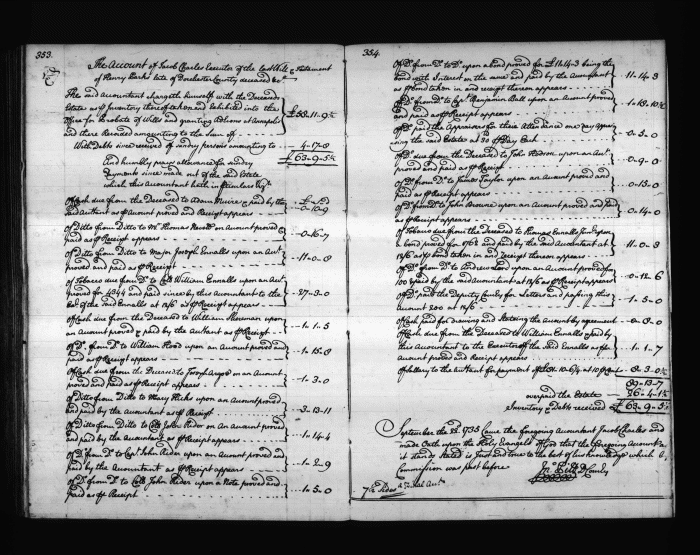 353.
The Account of Jacob Charles Executor of the Last Will & Testament
of Henry Parks late of Dorchester County deceased
The said accountant chargeth himself with the Deceaseds
Estate as Inventory thereof taken and Exhibited into the
Office for Probate of Wills and granting Admons at Annapolis
and there Recorded amounting to the Sum of £58-11-9½
With Debts since received of sundry persons amounting to 4-17-8
£63-9-5½
And humbly prays allowance for sundry
Payments since made out of the said Estate
which this Accountant hath in
Of Cash due from the Deceased to Adam Muire & paid by the
said Acctant as Account proved and Receipt appears 0-10-9
Of Ditto from Ditto to Mr Thomas Nevett on Account proved &
paid as Receipt appears 0-16-7
Of Ditto from Ditto to Major Joseph Ennalls upon an Acct
proved and paid as Receipt 11-0-8
Of Tobacco due from the Deceased to Coll William Ennalls upon an Acct
proved for 4344 and paid since by this Accountant to the
of the said Ennalls at 12/6 as Receipt appears 27-3-0
Of Cash due from the Deceased to William Shewman upon
an Account proved & paid by the Acctant as Receipt 1-1-5
Of Do from Do to William Hood upon an Account proved and
paid as Receipt appears 1-15-8
Of Cash due from the Deceased to Joseph upon an Account
proved and paid as Receipt appears 1-3-0
Of Ditto from Ditto to Mary Hicks upon an Account proved
and paid by the Accountant as Receipt 3-13-11
Of Ditto from Ditto to Coll John Rider on an Account proved
and paid by the Accountant as Receipt appears 1-14-4
Of Do from Do to Capt John Rider upon an Account proved and
paid by the Accountant as Receipt appears 1-2-9
Of Do from Do to Coll John Rider upon a Note proved and
paid as Receipt 1-5-0
354.
Of Do from Do to Do upon a bond proved for £11-14-3 being the
bond with Interest on the same and paid by the Accountant
as bond taken in and receipt thereon appears 11-14-3
Of Do from Do to Capt Benjamin Ball upon an Account proved
and paid as Receipt appears 1-18-10½
Of Do paid the Appraisers for their Attendance one Day appra-
ising the said Estate at 30 Day Cash 0-5-0
Of Do due from the Deceased to John Hodson upon an Acct
proved and paid as Receipt appears 0-9-0
Of Do from Do to James Taylor upon an Account proved and
paid as Receipt appears 0-15-0
Of Do from Do to John Browne upon an Account proved and paid
as Receipt appears 0-14-0
Of Tobacco due from the deceased to Thomas Ennalls Junr upon
a bond proved for and paid by the said Accountant at
12/6 as bond taken in and receipt thereon appears 11-0-8
Of Do from Do to Andrew Lord upon an Account proved for
100 paid by the said Accountant at 12/6 as Receipt appears 0-12-6
Of Do paid the Deputy Comry for Letters and passing this
Account 200 at 12/6 1-5-0
Of Cash paid for drawing and Stateing the Account by agreement 0-8-0
Of Cash due from the Deceased to William Ennalls & paid by
this Accountant to the Executor of the said Ennalls as
Account proved and Receipt appears 1-1-7
Of Sallery to the Acctant for payment of at 10 8-3-0½
89-13-7
overpaid the Estate 26-4-1½
Inventory & Debts received £63-9-5½
September the 1735 Came the foregoing Accountant Jacob Charles and
made Oath upon the Holy Evangels of God that the foregoing Account as
it stands Stated is Just and true to the best of his knowledge which
Commission was past before
Comry
7½ Sides